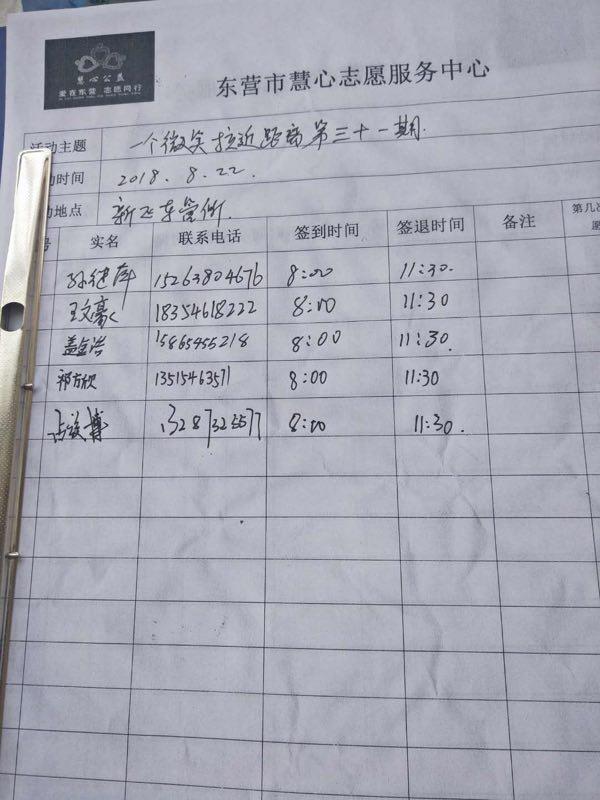 慧心公益
爱在东营 志愿同行
东营市慧心志愿服务中心
活动主题 一个微笑拉近距离第三十一期.
动时间 2018.8.22.
动地点 新区东营街.
号 实名 联系电话 签到时间 签退时间 备注 第几次
愿
孙建军 15263804676 8:00 11:30.
王文豪 18354618222 8:00 11:30
盖金浩 15865455218 8:00 11:30.
祁方欣 13515463571 8:00 11:30
8:00 11:30.